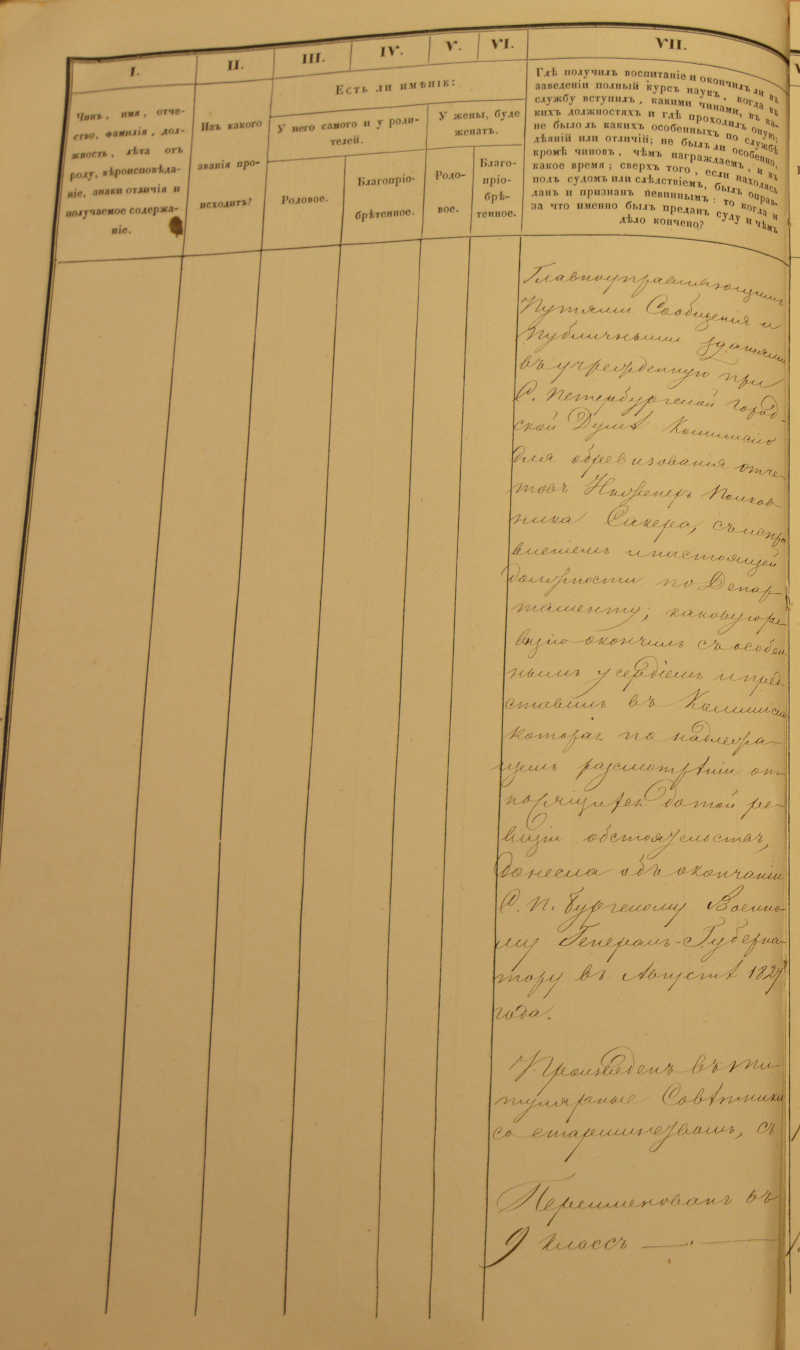 I.
II.
III.
IV.
V.
VI.
VII.
Чинъ, имя, отче-
ство, фамилія, дол-
жность, лѣта отъ
роду, вѣроисповѣда-
ніе, знаки отличія и
получаемое содержа-
ніе.
Изъ какого
званія про-
исходитъ?
Есть ли имѣніе:
У него самого и у роди-
телей.
У жены, буде
женатъ.
Родовое.
Благопріо-
брѣтенное.
Родо-
вое.
Благо-
пріо-
брѣ-
тенное.
Гдѣ получилъ воспитаніе и окончилъ ли въ
заведеніи полный курсъ наукъ, когда въ
службу вступилъ, какими чинами, въ ка-
кихъ должностяхъ и гдѣ проходилъ оную;
не было ль какихъ особенныхъ по службѣ
дѣяній или отличій; не былъ ли особенно,
кромѣ чиновъ, чѣмъ награждаемъ, и въ
какое время; сверхъ того, если находясь
подъ судомъ или слѣдствіемъ, былъ оправ-
данъ и признанъ невиннымъ: то когда и
за что именно былъ преданъ суду и чѣмъ
дѣло кончено?
Главноуправляющимъ
Путями Сообщенія и
Публичными зданіями
въ учрежденную при
С. Петербургской Город-
ской Думѣ Коммиссію
для обревизованія отче-
товъ Инженеръ Полков-
ника Сакера, съ испра
вленіемъ и настоящей
должности по Депар-
таменту; каковую ре-
визію окончилъ съ особен
нымъ усердіемъ и пред-
ставилъ въ Коммиссію
которая по надлежа-
щемъ разсмотрѣніи от-
до той ре-
визіи обстоятельствъ,
донесла объ окончаніи
С. П. Бургскому Военно-
му Генералъ-Губерна-
тору въ Августѣ 1829
года.
Произведенъ въ Ти-
тулярные Совѣтники
со старшинствомъ, съ
Переименованъ въ
9 классъ